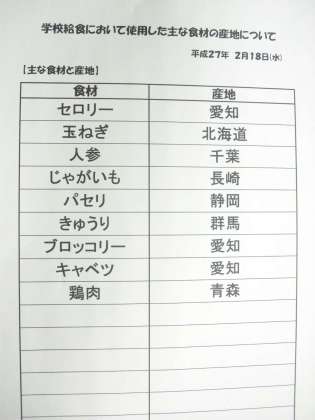 学校給食において使用した主な食材の産地について
平成27年 2月18日(水)
【主な食材と産地】
食材 産地
セロリー 愛知
玉ねぎ 北海道
人参 千葉
じゃがいも 長崎
パセリ 静岡
きゅうり 群馬
ブロッコリー 愛知
キャベツ 愛知
鶏肉 青森